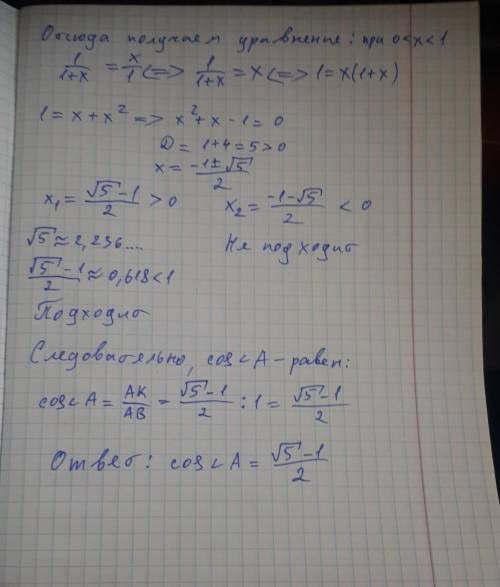 Отсюда получаем уравнение: при 0<x<1
1/(1+x) = x/1 <=> 1/(1+x) = x <=> 1=x(1+x)
1=x+x² => x²+x-1=0
D=1+4=5>0
x=(-1±√5)/2
x₁=(√5-1)/2 >0 x₂=(-1-√5)/2 <0
√5≈2,236.... Не подходит
(√5-1)/2≈0,618<1
Подходит
Следовательно, cos<A-равен:
cos<A=AK/AB=(√5-1)/2:1=(√5-1)/2
Ответ: cos<A=(√5-1)/2